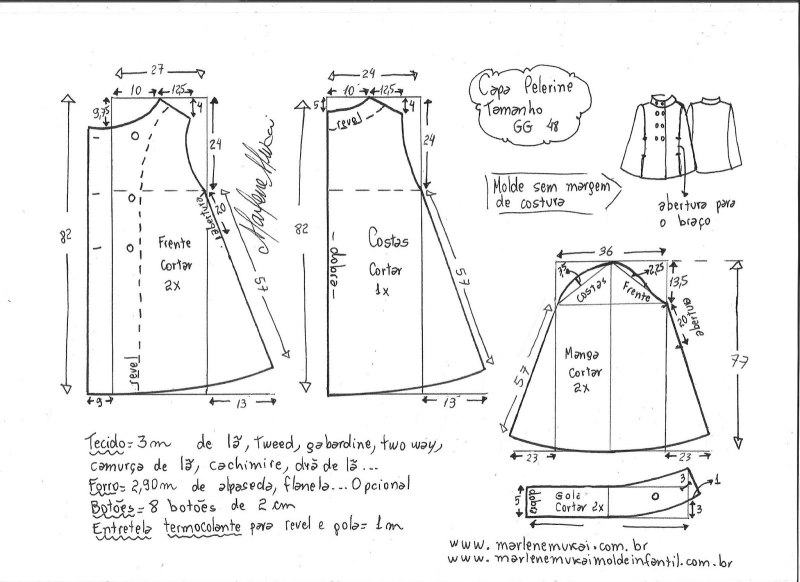 Capa Pelerine
Tamanho
GG 48
Molde sem margem
de costura
abertura para
o braço
27
10
12,5
9,75
4
24
82
20
abertura
57
Frente
Cortar
2x
revel
9
13
Marlene Mukai
24
10
12,5
5
4
revel
24
82
dobra
Costas
Cortar
1x
57
13
36
7,5
2,25
costas
Frente
13,5
20
abertura
57
77
Manga
cortar
2x
23
23
5
dobra
Gola
Cortar 2x
3
1
3
Tecido= 3m de lã, tweed, gabardine, two way,
camurça de lã, cachimire, drã de lã...
Forro= 2,90m de alpaseda, flanela... Opcional
Botões= 8 botões de 2 cm
Entretela termocolante para revel e gola= 1m
www.marlenemukai.com.br
www.marlenemukaimoldeinfantil.com.br